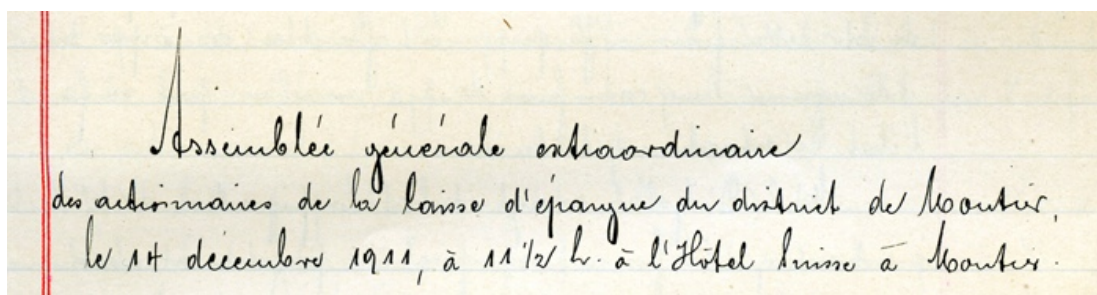 Assemblée générale extraordinaire
des actionnaires de la Caisse d'épargne du district de Moutier,
le 14 décembre 1911, à 11 1/2 h. à l'Hôtel Suisse à Moutier.